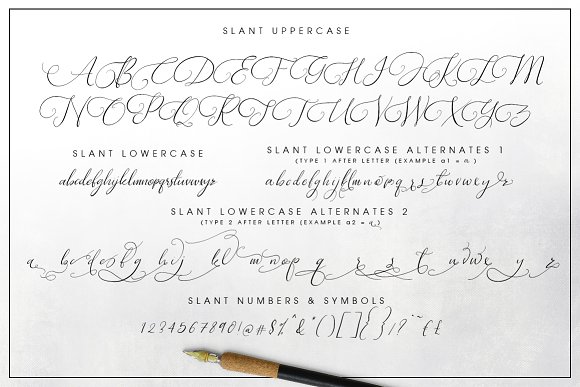 SLANT UPPERCASE
ABCDEFGHIJKLM
NOPQRSTUVWXYZ
SLANT LOWERCASE
abcdefghijklmnopqrstuvwxyz
SLANT LOWERCASE ALTERNATES 1
(TYPE 1 AFTER LETTER (EXAMPLE a1 = a)
abcdefghijklmnopqrstuvwxyz
SLANT LOWERCASE ALTERNATES 2
(TYPE 2 AFTER LETTER (EXAMPLE a2 = a)
a bcdefg hij kl mnop q r s t uvwx y z
SLANT NUMBERS & SYMBOLS
12345678901@#$%^&*()[]{}/!?